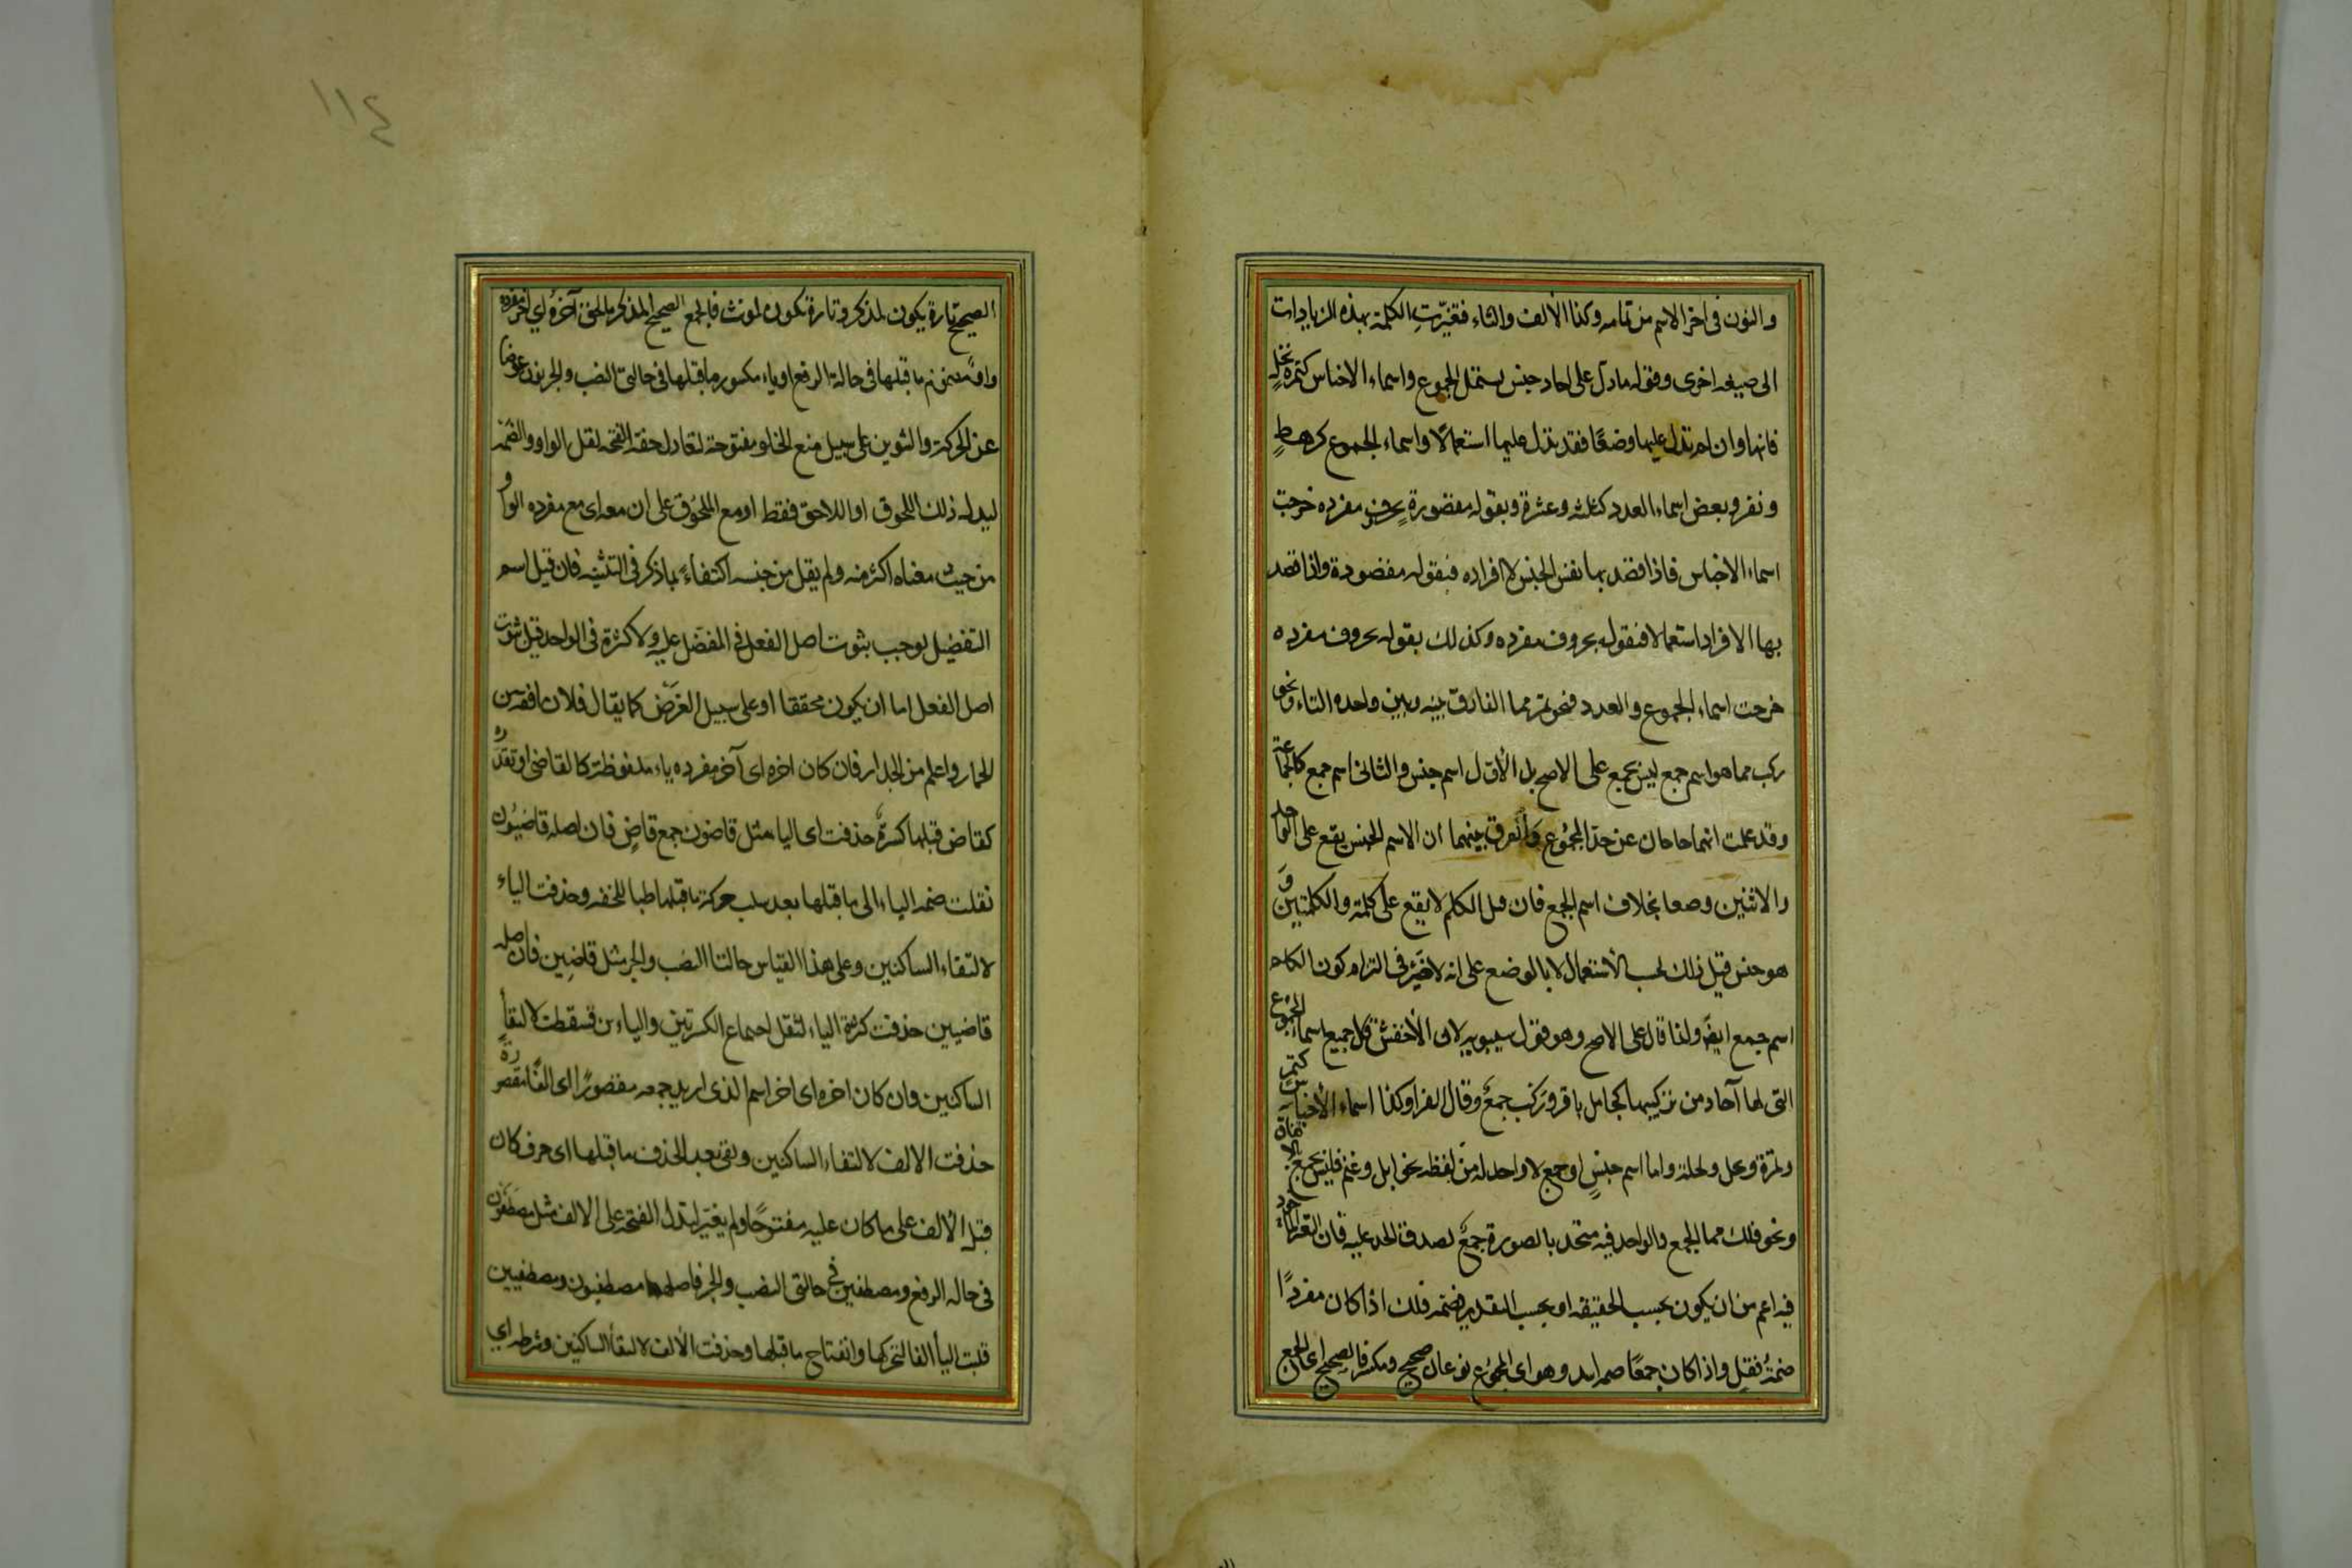 والنون فى اخر الاسم من تمامه وكذا الألف والتاء فتغيّرتِ الكلمة بهذه الزيادات
الى صيغه اخرى وقوله مادلّ على احاد جنس يشتمل المجموع واسماء الاجناس كتمرة نخلٍ
فانها وان لم تدل عليها وضعًا فقد تدل عليها استعمالًا واسماء الجموع كرهطٍ
ونفر وبعض اسماء العدد كثلثه وعشرة وبقوله مقصورةٍ بحرفِ مفرده خرجت
اسماء الاجناس فاذا قصد بها نفس الجنس لا افراده فبقوله مقصودة واذا قصد
بها الافراد استعمالا فبقوله بحروف مفرده وكذلك بقوله بحروف مفرده
خرجت اسماء الجموع والعدد فنحو تمر مما الفارق بينه وبين واحده التاء ونحو
ركب مما هو اسم جمع ليس بجمع على الاصح بل الأول اسم جنس والثانى اسم جمع كالجماعة
وقد علمت انهما خارجان عن حدّ المجموع والفرق بينهما ان الاسم الجنس يقع على الواحد
والاثنين وضعا بخلاف اسم الجمع فان قيل الكلم لا يقع على كلمة والكلمتين و
هو جنس قيل ذلك بحسب الأستعمال لا بالوضع على انه لا ضير فى التزام كون الكلم
اسم جمع ايضًا ولذا قال على الاصح وهو قول سيبويه لان الأخفش قال جميع اسماء الجموع
التى لها آحاد من تركيبها كجامل باقر وركب جمعٌ وقال الفرا وكذا اسماء الأجناس كتمر
وتمرة ونخل ونخلة واما اسم جنسٍ او جمع لا واحد له من لفظه نحو ابل وغنم فليس بجمع
ونحو فلك مما الجمع والواحد فيه متحد بالصورة جمعٌ لصدق الحد عليه فان التغير
فيه اعم من ان يكون بحسب الحقيقه او بحسب التقدير فضمه فلك اذا كان مفردًا
ضمةُ قفل واذا كان جمعًا ضمه اسد وهو اى المجموع نوعان صحيح ومكسر فالصحيح اى الجمع
الصحيح تارة يكون لمذكر وتارة يكون لمونث فالجمع الصحيح المذكر ما لحق آخرهُ اي اخر مفرده
واوٌ مضموم ما قبلها فى حالة الرفع او ياء مكسور ما قبلها فى حالتى النصب والجر ونون عوضا
عن الحركة والتنوين على سبيل منع الخلو مفتوحة لتعادل خفة الفتحه لثقل الواو والضمة
ليدل ذلك اللحوق او اللاحق فقط او مع الملحوق على ان معه اى مع مفرده الواو
من حيث معناه اكثر منه ولم يقل من جنسه اكتفاءً بما ذكر فى التثنيه فان قيل اسم
التفضيل يوجب ثبوت اصل الفعل فى المفضل عليه ولا كثرة فى الواحد قيل ثبوت
اصل الفعل اما ان يكون محققا او على سبيل الفرض كما يقال فلان افقه من
الحمار واعلم من الجدار فان كان اخره اى آخر مفرده ياء ملفوظة كالقاضى او تقديره
كقاض قبلها كسرةٌ حذفت اى اليا مثل قاضون جمع قاضٍ فان اصله قاضيُون
نقلت ضمه الياء الى ما قبلها بعد سلب حركة ما قبلها طلبا للخفه وحذفت الياء
لالتقاء الساكنين وعلى هذا القياس حالتا النصب والجر مثل قاضِين فان اصله
قاضيين حذفت كسرة الياء لثقل اجتماع الكسرتين والياء ين فسقطت لالتقأ
الساكنين وان كان اخره اى اخر اسم الذى اريد جمعه مقصورًا اى الفًا مقصورة
حذفت الالف لالتقاء الساكنين وبقى بعد الحذف ما قبلها اى حرف كان
قبل الألف على ما كان عليه مفتوحًا ولم يغير لتدل الفتحه على الالف مثل مصطفون
فى حاله الرفع ومصطفين فى حالتى النصب والجر فاصلهما مصطفيون ومصطفيين
قلبت اليأ الفا لتحركها وانفتاح ما قبلها وحذفت الألف لالتقأ الساكنين وشرطه اي
١١٤